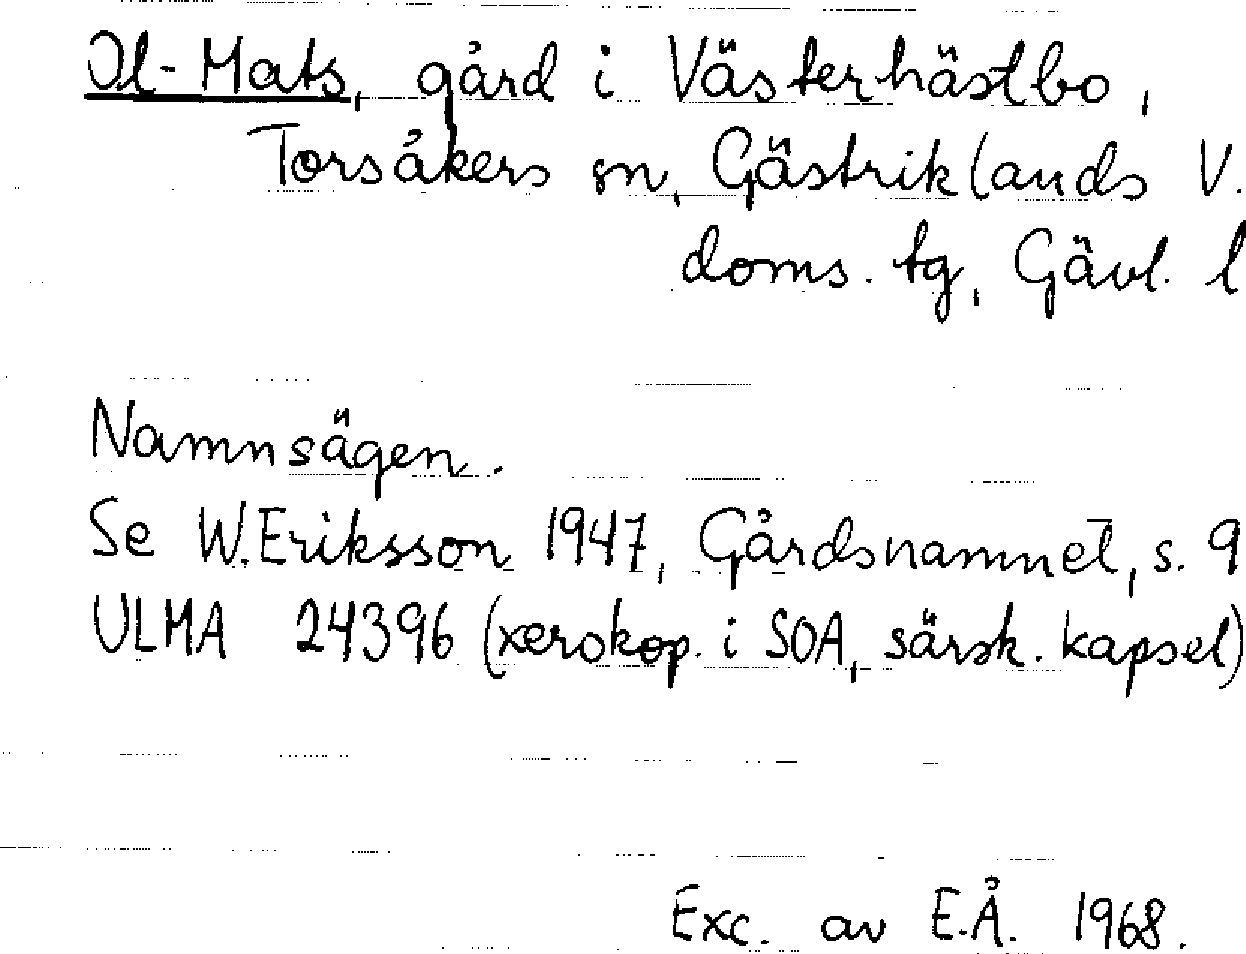 Ol-Mats, gård i Västerhästbo,
Torsåkers sn, Gästriklands V.
doms. tg, Gävl. l
Namnsägen.
Se W. Eriksson 1947, Gårdsnamnet, s. 9
ULMA 24396 (xerokop. i SOA, särsk. kapsel)
Exc. av E.Å. 1968.